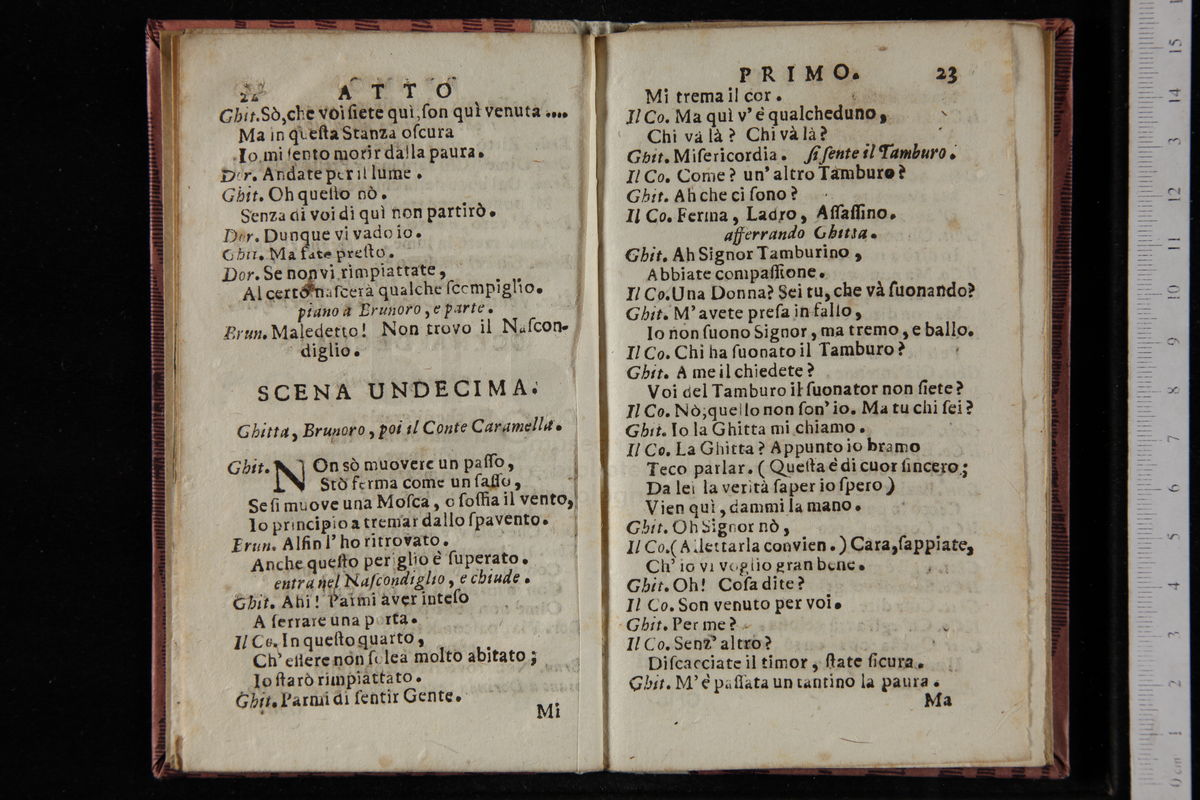 22 ATTO
Ghit. Sò, che voi ſiete quì, ſon quì venuta ....
Ma in queſta Stanza oſcura
Io mi ſento morir dalla paura.
Dor. Andate per il lume.
Ghit. Oh queſto nò.
Senza di voi di quì non partirò.
Dor. Dunque vi vado io.
Ghit. Ma fate preſto.
Dor. Se non vi rimpiattate,
Al certo naſcerà qualche ſcompiglio.
piano a Brunoro, e parte.
Brun. Maledetto! Non trovo il Naſcon-
diglio.
SCENA UNDECIMA.
Ghitta, Brunoro, poi il Conte Caramella.
Ghit. NOn sò muovere un paſſo,
Stò ferma come un ſaſſo,
Se ſi muove una Moſca, o ſoffia il vento,
Io principio a tremar dallo ſpavento.
Brun. Alfin l' ho ritrovato.
Anche queſto periglio è ſuperato.
entra nel Naſcondiglio, e chiude.
Ghit. Ahi! Parmi aver inteſo
A ſerrare una porta.
Il Co. In queſto quarto,
Ch' eſſere non ſolea molto abitato;
Io ſtarò rimpiattato.
Ghit. Parmi di ſentir Gente.
Mi
PRIMO. 23
Mi trema il cor.
Il Co. Ma quì v' è qualcheduno,
Chi và là? Chi và là?
Ghit. Miſericordia. ſi ſente il Tamburo.
Il Co. Come? un' altro Tamburo?
Ghit. Ah che ci ſono?
Il Co. Ferma, Ladro, Aſſaſſino.
afferrando Ghitta.
Ghit. Ah Signor Tamburino,
Abbiate compaſſione.
Il Co. Una Donna? Sei tu, che và ſuonando?
Ghit. M' avete preſa in fallo,
Io non ſuono Signor, ma tremo, e ballo.
Il Co. Chi ha ſuonato il Tamburo?
Ghit. A me il chiedete?
Voi del Tamburo il ſuonator non ſiete?
Il Co. Nò, quello non ſon' io. Ma tu chi ſei?
Ghit. Io la Ghitta mi chiamo.
Il Co. La Ghitta? Appunto io bramo
Teco parlar. (Queſta è di cuor ſincero;
Da lei la verità ſaper io ſpero)
Vien quì, dammi la mano.
Ghit. Oh Signor nò,
Il Co. (Allettarla convien.) Cara, ſappiate,
Ch' io vi voglio gran bene.
Ghit. Oh! Coſa dite?
Il Co. Son venuto per voi.
Ghit. Per me?
Il Co. Senz' altro?
Diſcacciate il timor, ſtate ſicura.
Ghit. M' è paſſata un tantino la paura.
Ma
0 cm 1 2 3 4 5 6 7 8 9 10 11 12 13 14 15